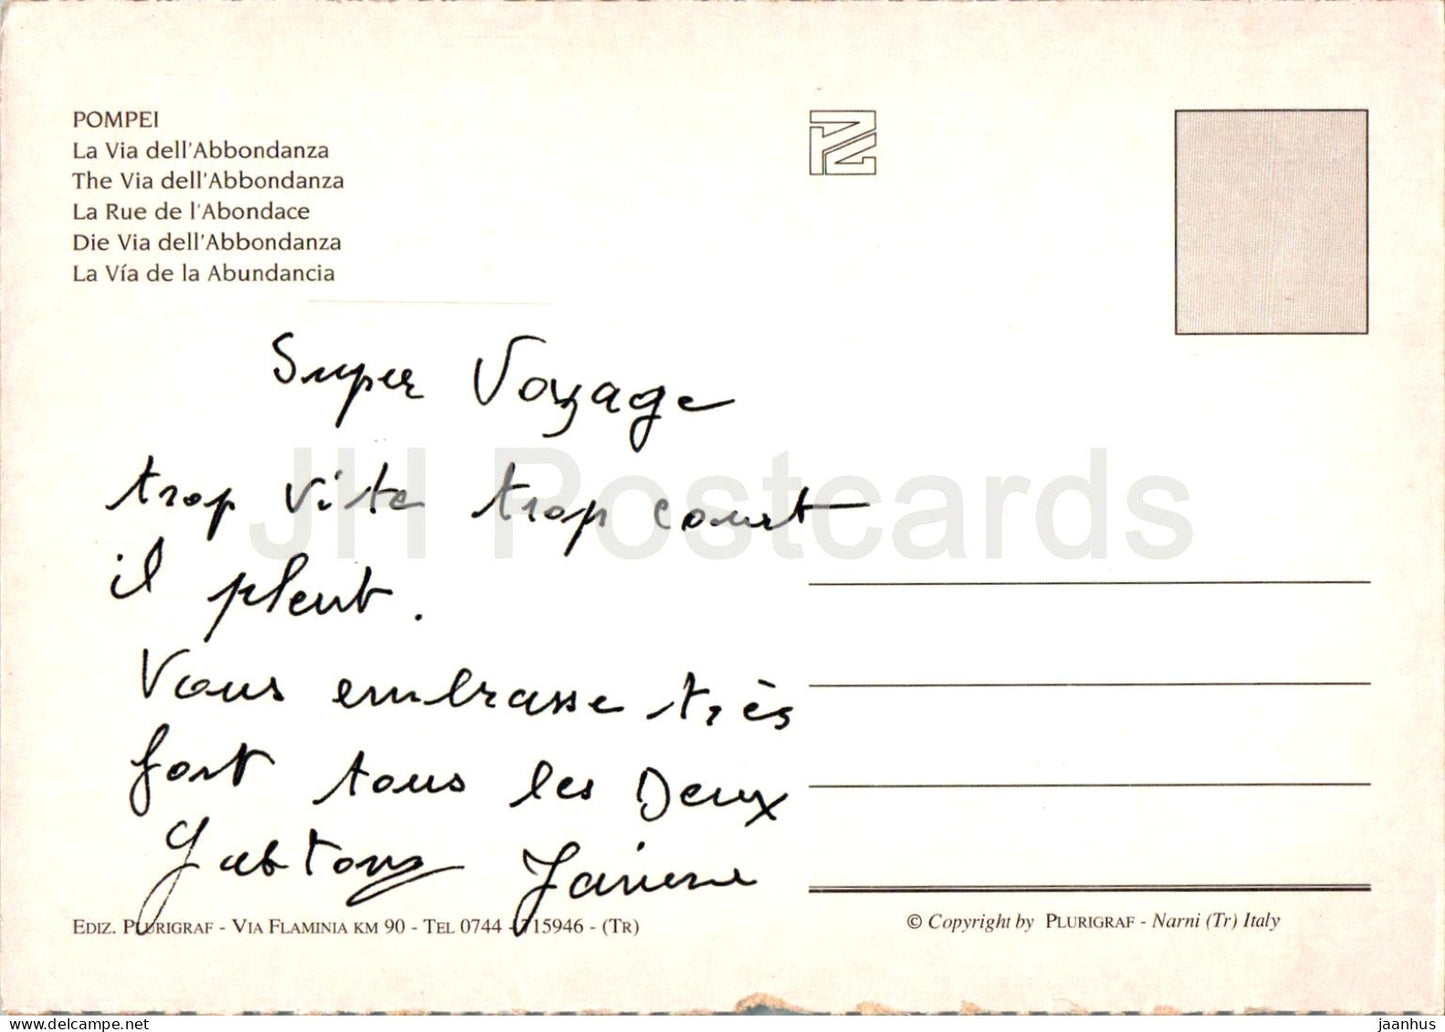 POMPEI
La Via dell'Abbondanza
The Via dell'Abbondanza
La Rue de l'Abondace
Die Via dell'Abbondanza
La Vía de la Abundancia
Super Voyage
trop vite trop court
il pleut.
Vous embrasse très
fort tous les Deux
Janine
EDIZ. PLURIGRAF - VIA FLAMINIA KM 90 - TEL 0744 - 715946 - (TR)
© Copyright by PLURIGRAF - Narni (Tr) Italy
JH Postcards
hippostcard.com
jaanhus